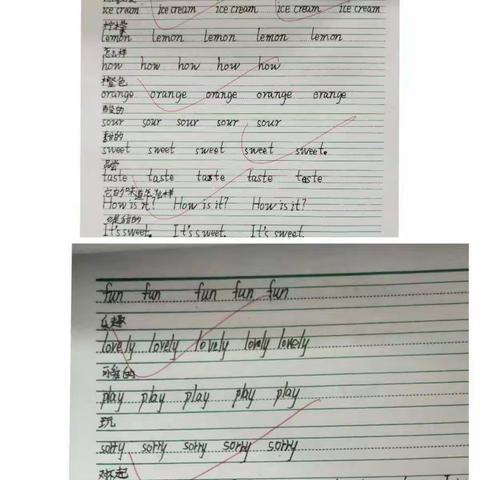 ice cream ice cream ice cream ice cream ice cream
柠檬
lemon lemon lemon lemon lemon
怎么样
how how how how how
橙色
orange orange orange orange orange
酸的
sour sour sour sour sour
甜的
sweet sweet sweet sweet sweet.
品尝
taste taste taste taste taste
它的味道怎么样
How is it? How is it? How is it?
It's sweet. It's sweet. It's sweet.
fun fun fun fun fun
乐趣
lovely lovely lovely lovely lovely
可爱的
play play play play play
玩
sorry sorry sorry sorry sorry
对不起